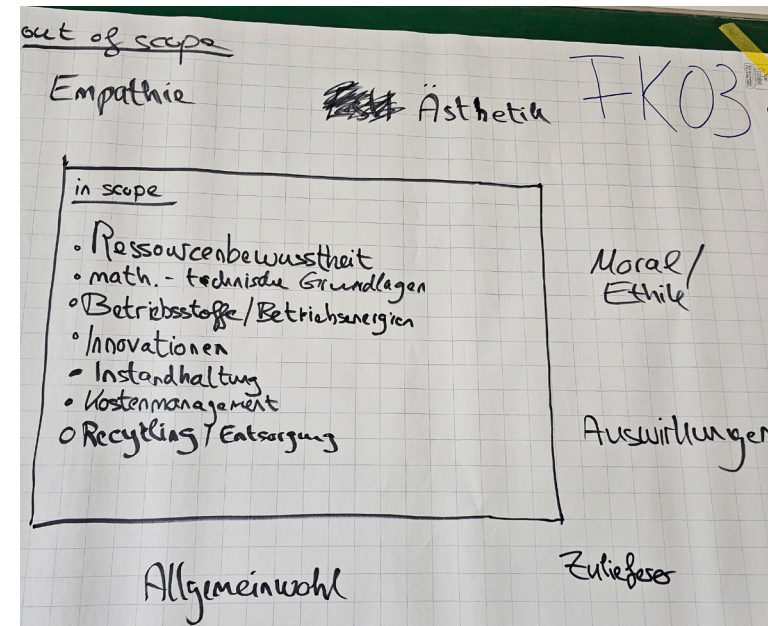 out of scope
Empathie
Ästhetik
FK03
in scope
• Ressourcenbewusstheit
• math. - technische Grundlagen
• Betriebsstoffe/Betriebsenergien
• Innovationen
• Instandhaltung
• Kostenmanagement
• Recycling / Entsorgung
Moral/
Ethik
Auswirkungen
Allgemeinwohl
Zulieferer